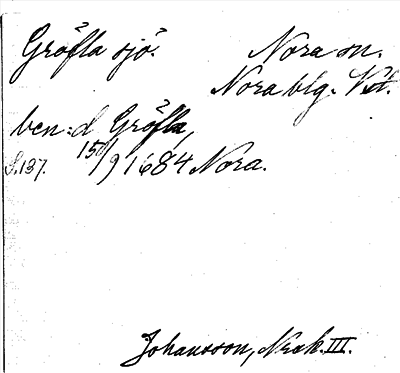 Gröfla sjö. Nora sn.
Nora blg. Vstl.
ben:d Gröfla,
S. 137. 15/9 1684 Nora.
Johansson, Norak. III.